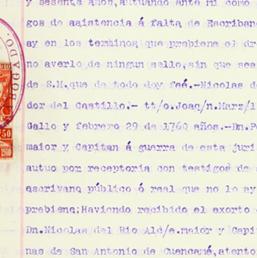 y sesenta años, autuando ante mi como
gos de asistencia á falta de Escriban
ay en los terminos que prebiene el dr
no averlo de ningun sello, sin que sea
de S.M. que de todo doy feé.-Nicolas de
dor del Castillo.- tt/o. Joaq/n. Marz/l
Gallo y febrero 29 de 1760 años.-Dn. Pe
maior y Capitan á guerra de esta juri
autuo por receptoria con testigos de
escrivano público ó real que no lo ay
prebiene; Haviendo recibido el exorto
Dn. Nicolas del Rio Ald/e. maior y Capi
nas de San Antonio de Cuencamé, atento